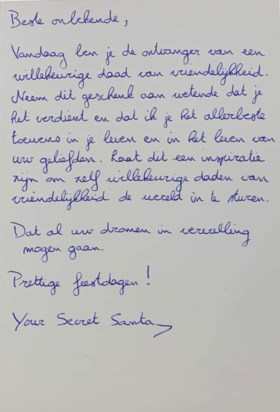 Beste onbekende,
Vandaag ben je de ontvanger van een
willekeurige daad van vriendelijkheid.
Neem dit geschenk aan wetende dat je
het verdient en dat ik je het allerbeste
toewens in je leven en in het leven van
uw geliefden. Laat dit een inspiratie
zijn om zelf willekeurige daden van
vriendelijkheid de wereld in te sturen.
Dat al uw dromen in vervulling
mogen gaan.
Prettige feestdagen!
Your Secret Santa